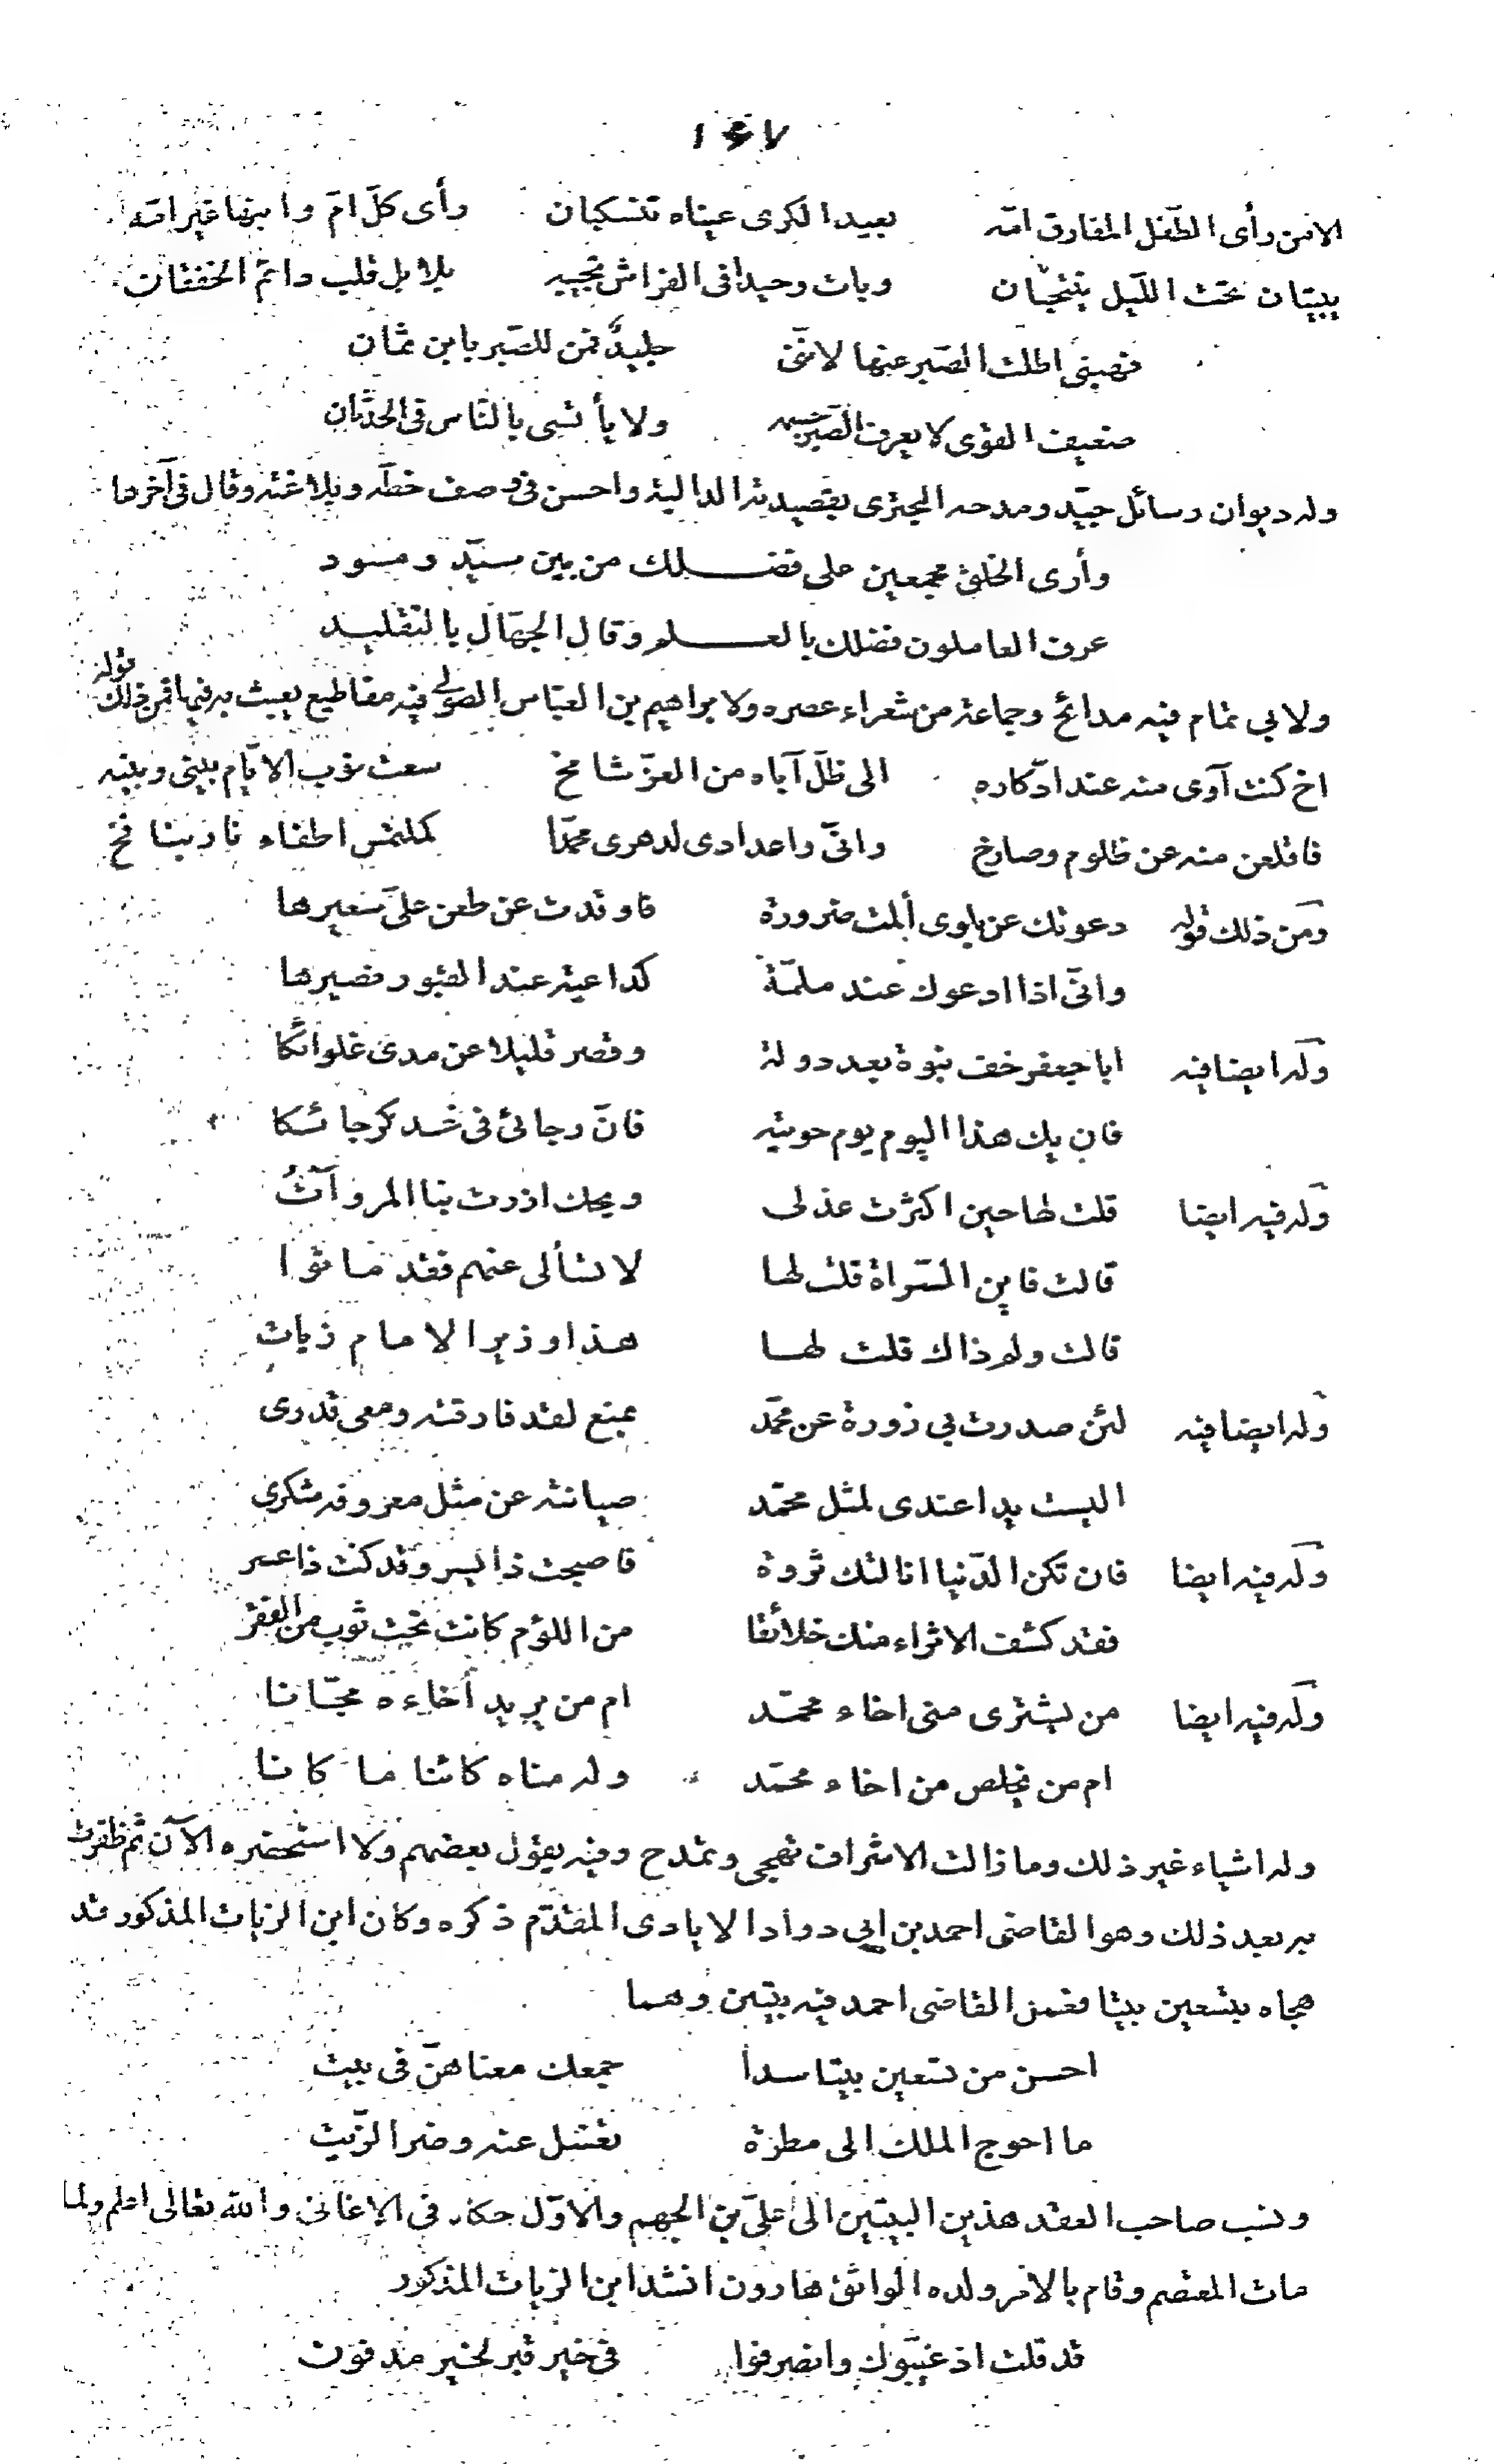 ١٤٧
الا من رأى الطّفل المفارق امّه بعيد الكرى عيناه تنسكبان رأى كلّ امّ وابنها غير امّه
يبيتان تحت اللّيل ينتجيان وبات وحيدا فى الفراش تجيبه بلابل قلب دائم الخفقان
فهبنى اطلت الصّبر عنها لانّنى جليدٌ فمن للصّبر بابن ثمان
ضعيف القوى لا يعرف الصّبر حسبه ولا يأتسى بالنّاس فى الحدثان
وله ديوان رسائل جيّد ومدحه البحترى بقصيدته الدالية واحسن فى وصف خطّه وبلاغته وقال فى آخرها
وأرى الخلق مجمعين على فضلك من بين سيّد ومسود
عرف العاملون فضلك بالعلم وقال الجهّال بالتقليد
ولابى تمام فيه مدائح وجماعة من شعراء عصره ولابراهيم بن العبّاس الصولى فيه مقاطيع يعبث به فيها فمن ذلك قوله
اخ كنت آوى منه عند ادّكاره الى ظلّ آباء من العزّ شامخ سعت نوب الايّام بينى وبينه
فاقلعن منه عن ظلوم وصارخ وانّى واعدادى لدهرى محمّدا كملتمس اطفاء نار بنافخ
ومن ذلك قوله دعوتك عن بلوى ألمت ضرورة فاوقدت عن طعن علىّ سعيرها
وانّى اذا ادعوك عند ملمّة كداعية عند القبور نصيرها
وله ايضا فيه ابا جعفر خف نبوة بعد دولة وقصر قليلا عن مدى غلوائكا
فان يك هذا اليوم يوم حويته فانّ رجائى فى غد كرجائكا
وله فيه ايضا قلت لها حين اكثرت عذلى ويحك ازرت بنا المروآتُ
قالت فاين السّراة قلت لها لا تسألى عنهم فقد ماتوا
قالت ولم ذاك قلت لها هذا وزير الامام زيات
وله ايضا فيه لئن صدرت بى زورة عن محمّد بمنع لقد فارقته ومعى قدرى
اليست يدا عندى لمثل محمّد صيانته عن مثل معروفه شكرى
وله فيه ايضا فان تكن الدّنيا انالتك ثروة فاصبحت ذا يسر وقد كنت ذا عسر
فقد كشف الاثراء منك خلائقا من اللؤم كانت تحت ثوب من الفقر
وله فيه ايضا من يشترى منى اخاء محمّد ام من يريد أخاءه مجّانا
ام من يخلص من اخاء محمّد وله مناه كائنا ما كانا
وله اشياء غير ذلك وما زالت الاشراف تهجى وتمدح وفيه يقول بعضهم ولا استحضره الآن ثم ظفرت
به بعد ذلك وهو القاضى احمد بن ابى دواد الايادى المقدّم ذكره وكان ابن الزيات المذكور قد
هجاه بتسعين بيتا فعمل القاضى احمد فيه بيتين وهما
احسن من تسعين بيتا سدا جمعك معناهنّ فى بيت
ما احوج الملك الى مطرة تغسل عنه وضر الزّيت
ونسب صاحب العقد هذين البيتين الى علىّ بن الجهم والاوّل حكاه فى الاغانى والله تعالى اعلم ولما
مات المعتصم وقام بالامر ولده الواثق هارون انشد ابن الزيات المذكور
قد قلت اذ غيّبوك وانصرفوا فى خير قبر لخير مدفون